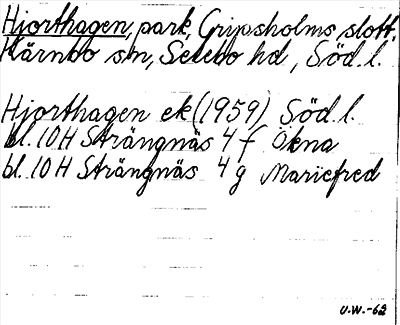 Hjorthagen, park, Gripsholms slott,
Kärnbo sn, Selebo hd, Söd.l.
Hjorthagen ek (1959) Söd.l.
bl. 10H Strängnäs 4 f Åkna
bl. 10 H Strängnäs 4 g Mariefred
U.W.-62